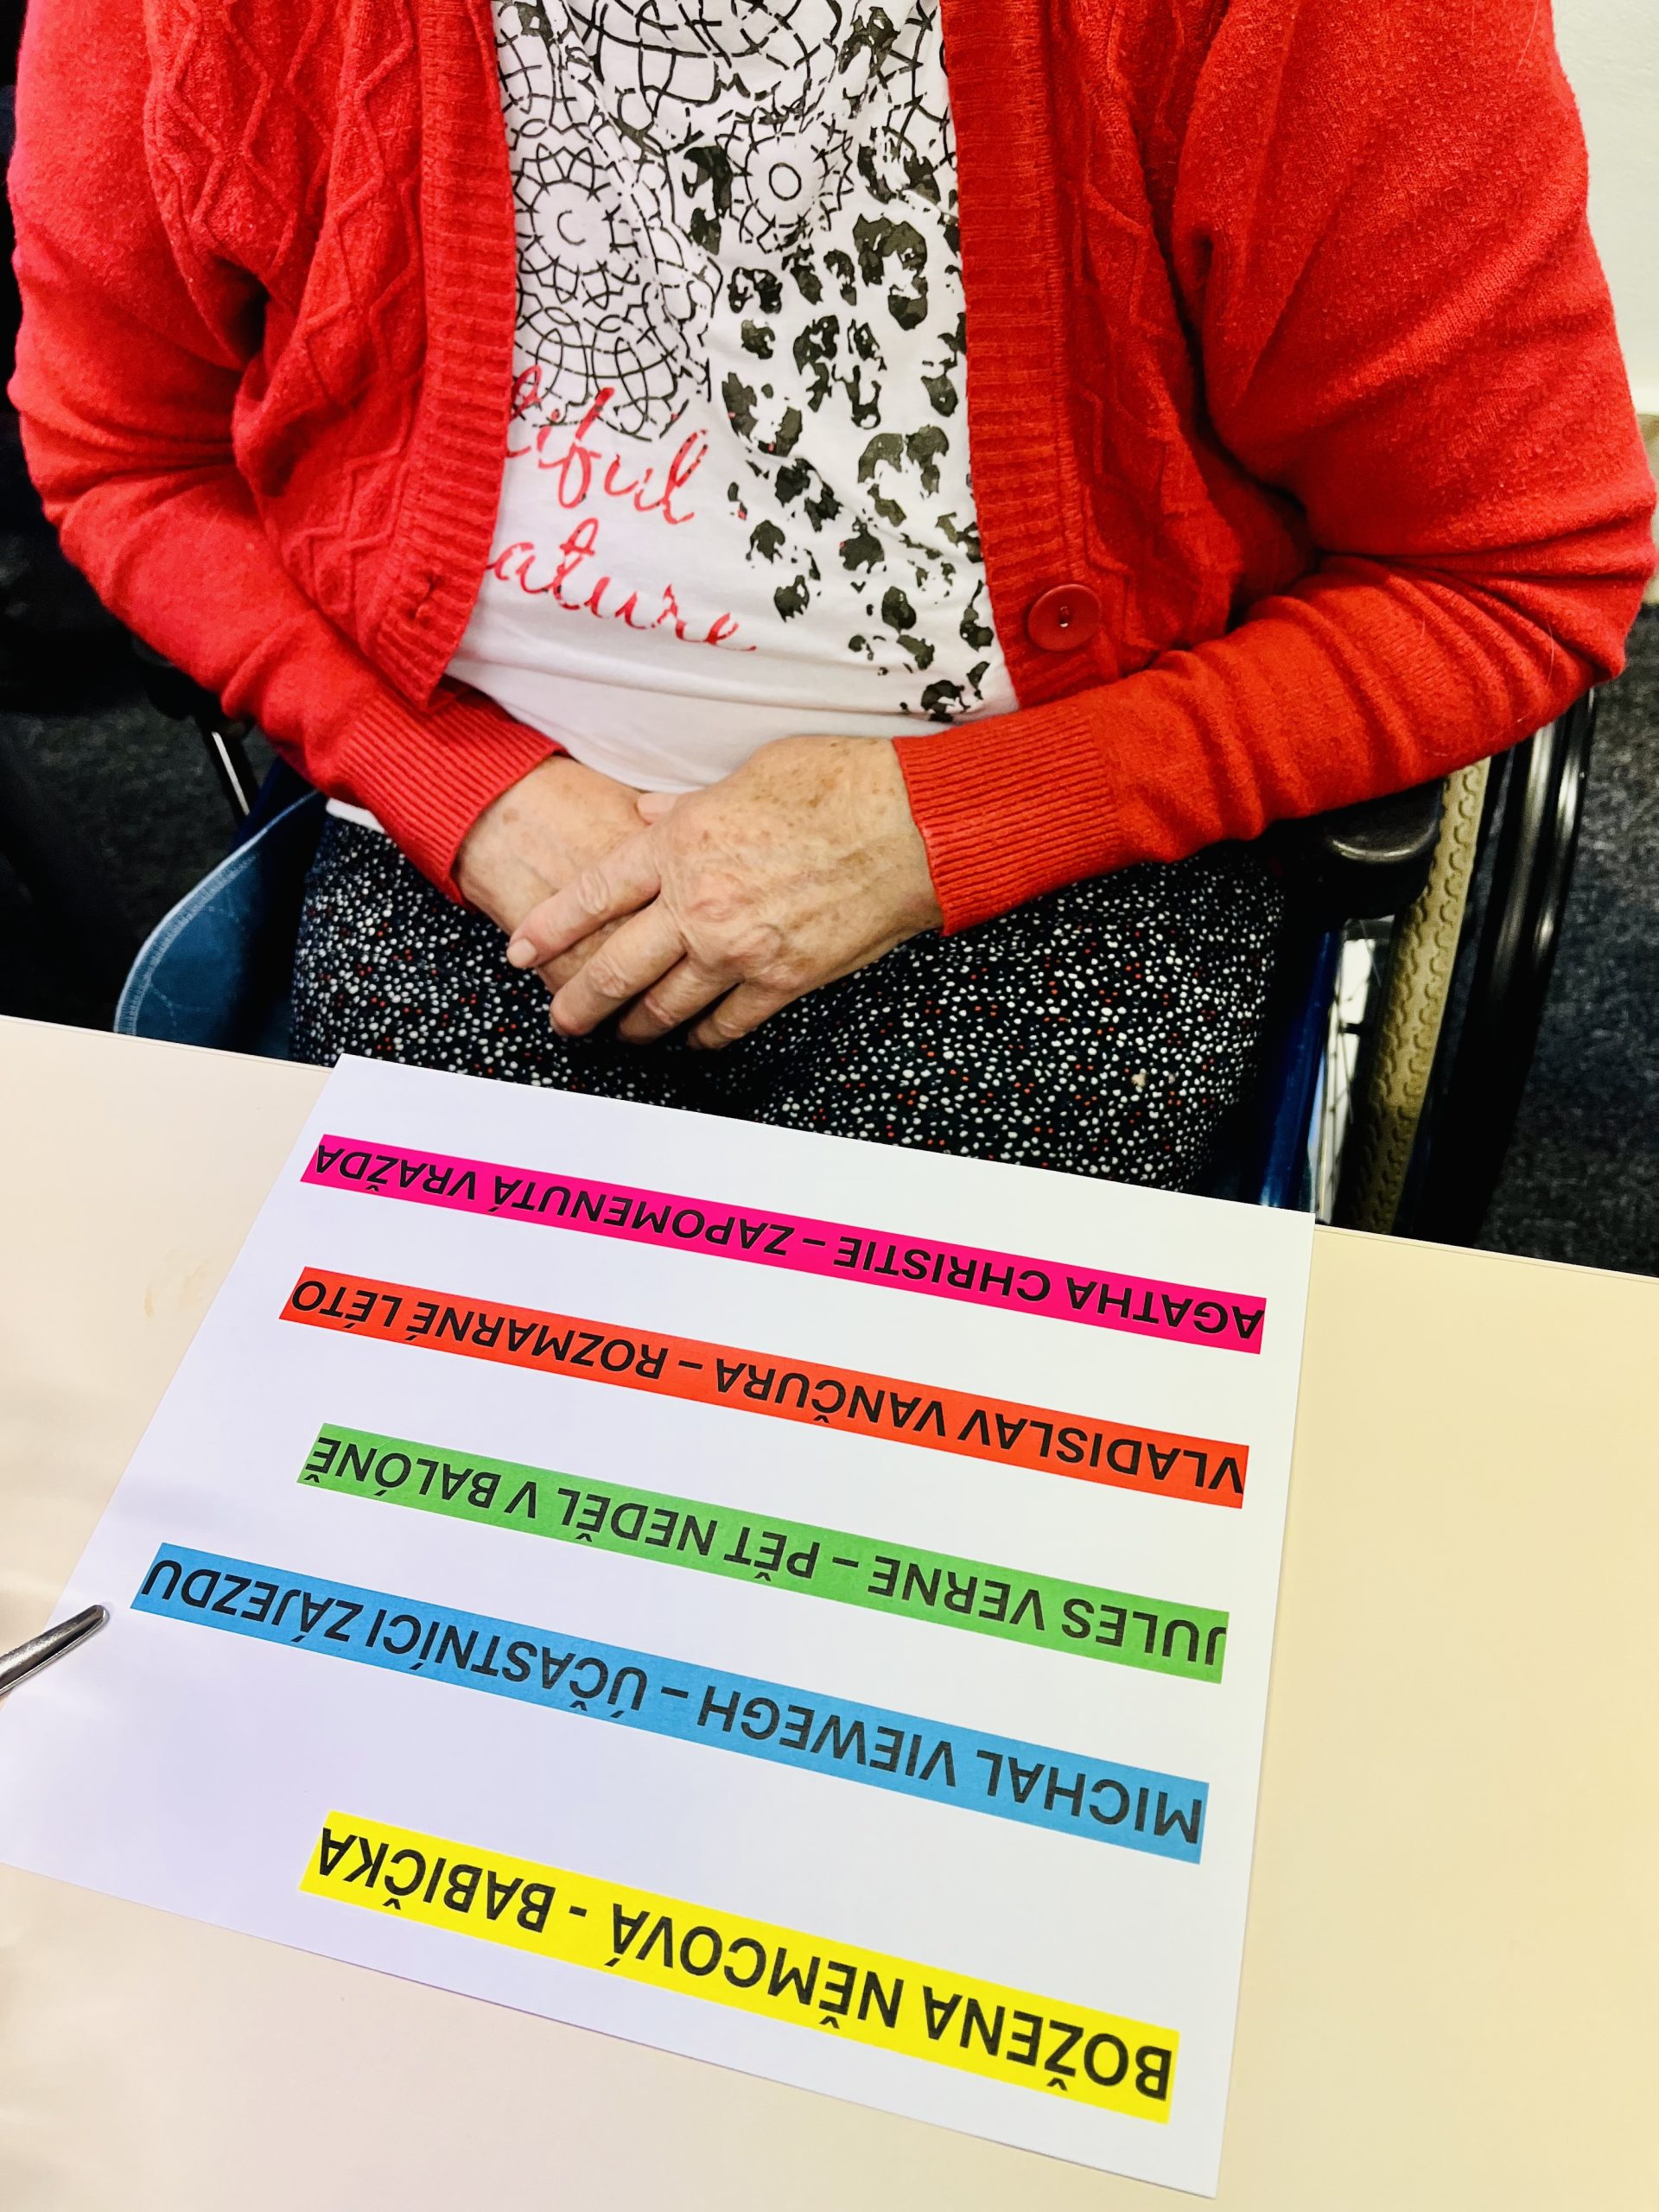 iful
ature
BOŽENA NĚMCOVÁ - BABIČKA
MICHAL VIEWEGH – ÚČASTNÍCI ZÁJEZDU
JULES VERNE – PĚT NEDĚL V BALÓNĚ
VLADISLAV VANČURA – ROZMARNÉ LÉTO
AGATHA CHRISTIE – ZAPOMENUTÁ VRAŽDA